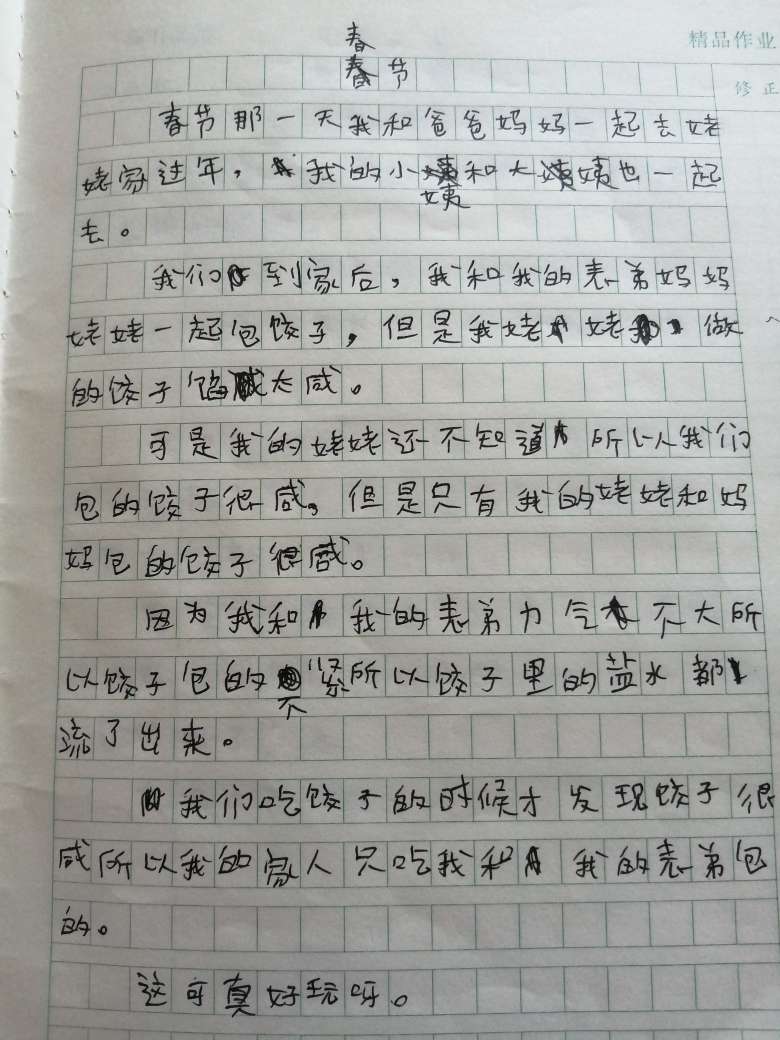 精品作业
修正
春
春节
春节那一天我和爸爸妈妈一起去姥
姥家过年，我的小姨和大姨也一起
去。
我们到家后，我和我的表弟妈妈
姥姥一起包饺子，但是我姥姥做
的饺子馅太咸。
可是我的姥姥还不知道所以我们
包的饺子很咸。但是只有我的姥姥和妈
妈包的饺子很咸。
因为我和我的表弟力气不大所
以饺子包的不紧所以饺子里的盐水都
流了出来。
我们吃饺子的时候才发现饺子很
咸所以我的家人只吃我和我的表弟包
的。
这可真好玩呀。